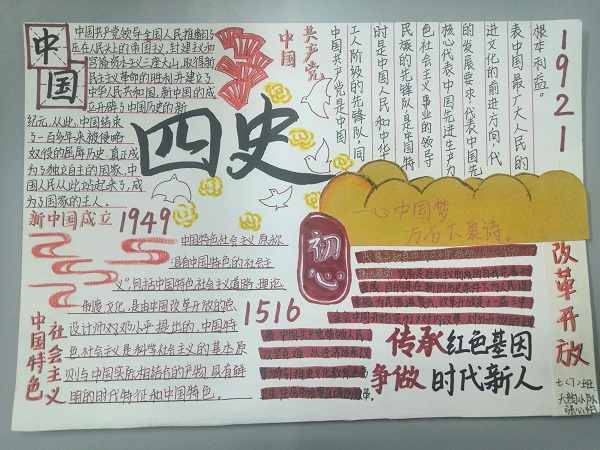 中国
中国共产党领导全国人民推翻了
压在人民头上的帝国主义,封建主义和
官僚资本主义三座大山,取得新
民主主义革命的胜利,并建立了
中华人民共和国,新中国的成
立开辟了中国历史的新
纪元,从此,中国结束
了一百多年来被侵略
奴役的屈辱历史,真正成
为了独立自主的国家,中
国人民从此站起来了,成
为了国家的主人。
四史
中国
共产党
中国共产党是中国
工人阶级的先锋队,同
时是中国人民和中华
民族的先锋队是中国特
色社会主义事业的领导
核心代表中国先进生产力
的发展要求,代表中国先
进文化的前进方向,代
表中国最广大人民的
根本利益。
1921
一心中国梦
万古下泉诗
初心
新中国成立 1949
中国特色社会主义
中国特色社会主义
混有中国特色的社会主
义"包括中国特色社会主义道路,理论
制度,文化,是由中国改革开放的总
设计师邓小平提出的,中国特
色社会主义是科学社会主义的基本原
则与中国实际相结合的产物,具有鲜
明的时代特征和中国特色。
1516
改革开放
传承红色基因
争做时代新人